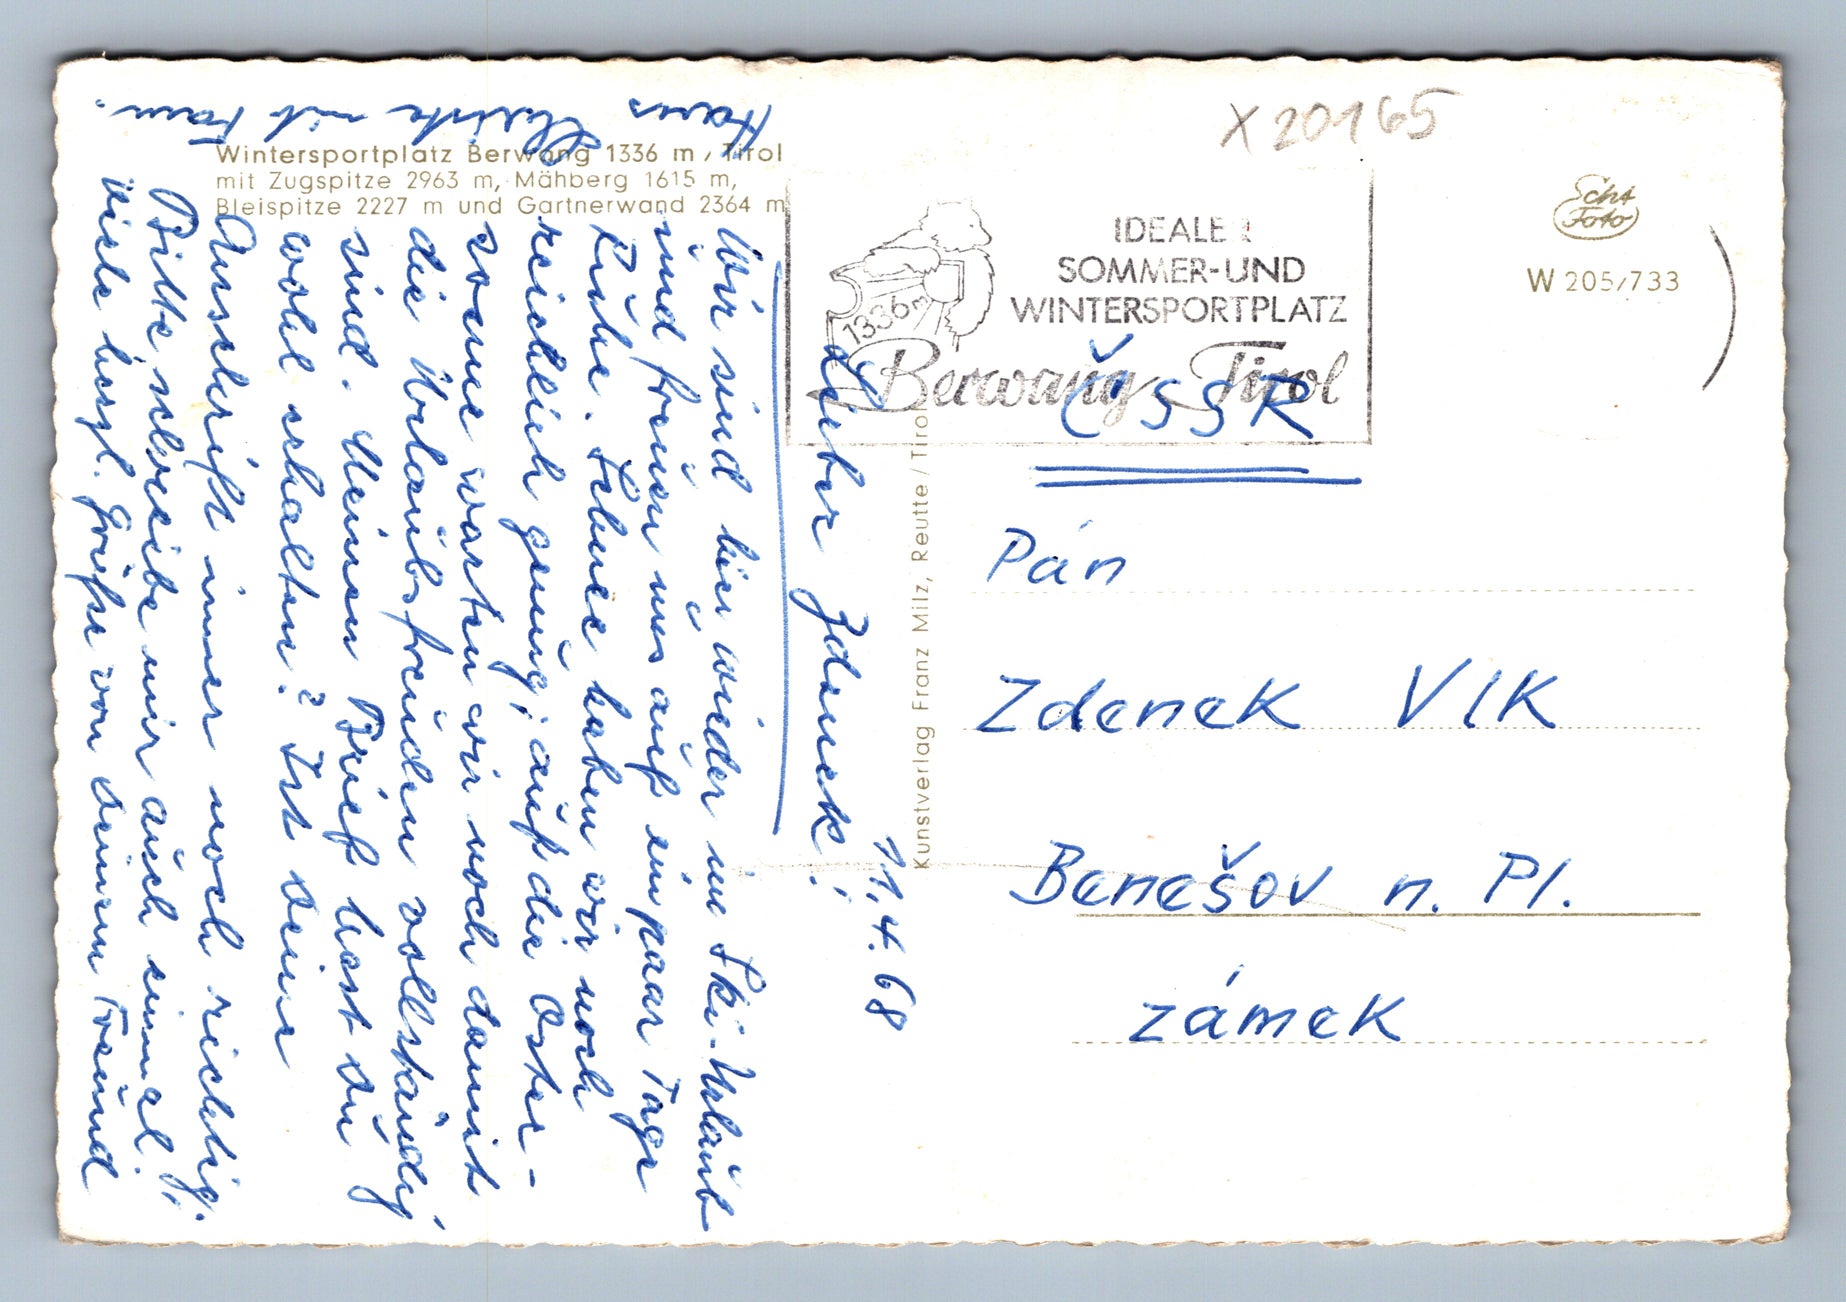 X 20165
Wintersportplatz Berwang 1336 m / Tirol
mit Zugspitze 2963 m, Mähberg 1615 m,
Bleispitze 2227 m und Gartnerwand 2364 m
IDEALER
SOMMER-UND
WINTERSPORTPLATZ
1336m
Berwang Tirol
Echt
Foto
W 205/733
Kunstverlag Franz Milz, Reutte / Tirol
11.4.68
Lieber Zdenek!
Wir sind hier wieder im Ski-Urlaub
und freuen uns auf ein paar Tage
Ruhe. Schnee haben wir noch
reichlich genug; auf die Oster-
sonne warten wir noch damit
die Urlaubsfreuden vollständig
sind. Meinen Brief hast du
wohl erhalten? Ist deine
Anschrift immer noch richtig.
Bitte schreibe mir auch einmal;
viele herzl. Grüße von deinem Freund
Hans mit Fam.
ČSSR
Pán
Zdenek Vlk
Benešov n. Pl.
zámek